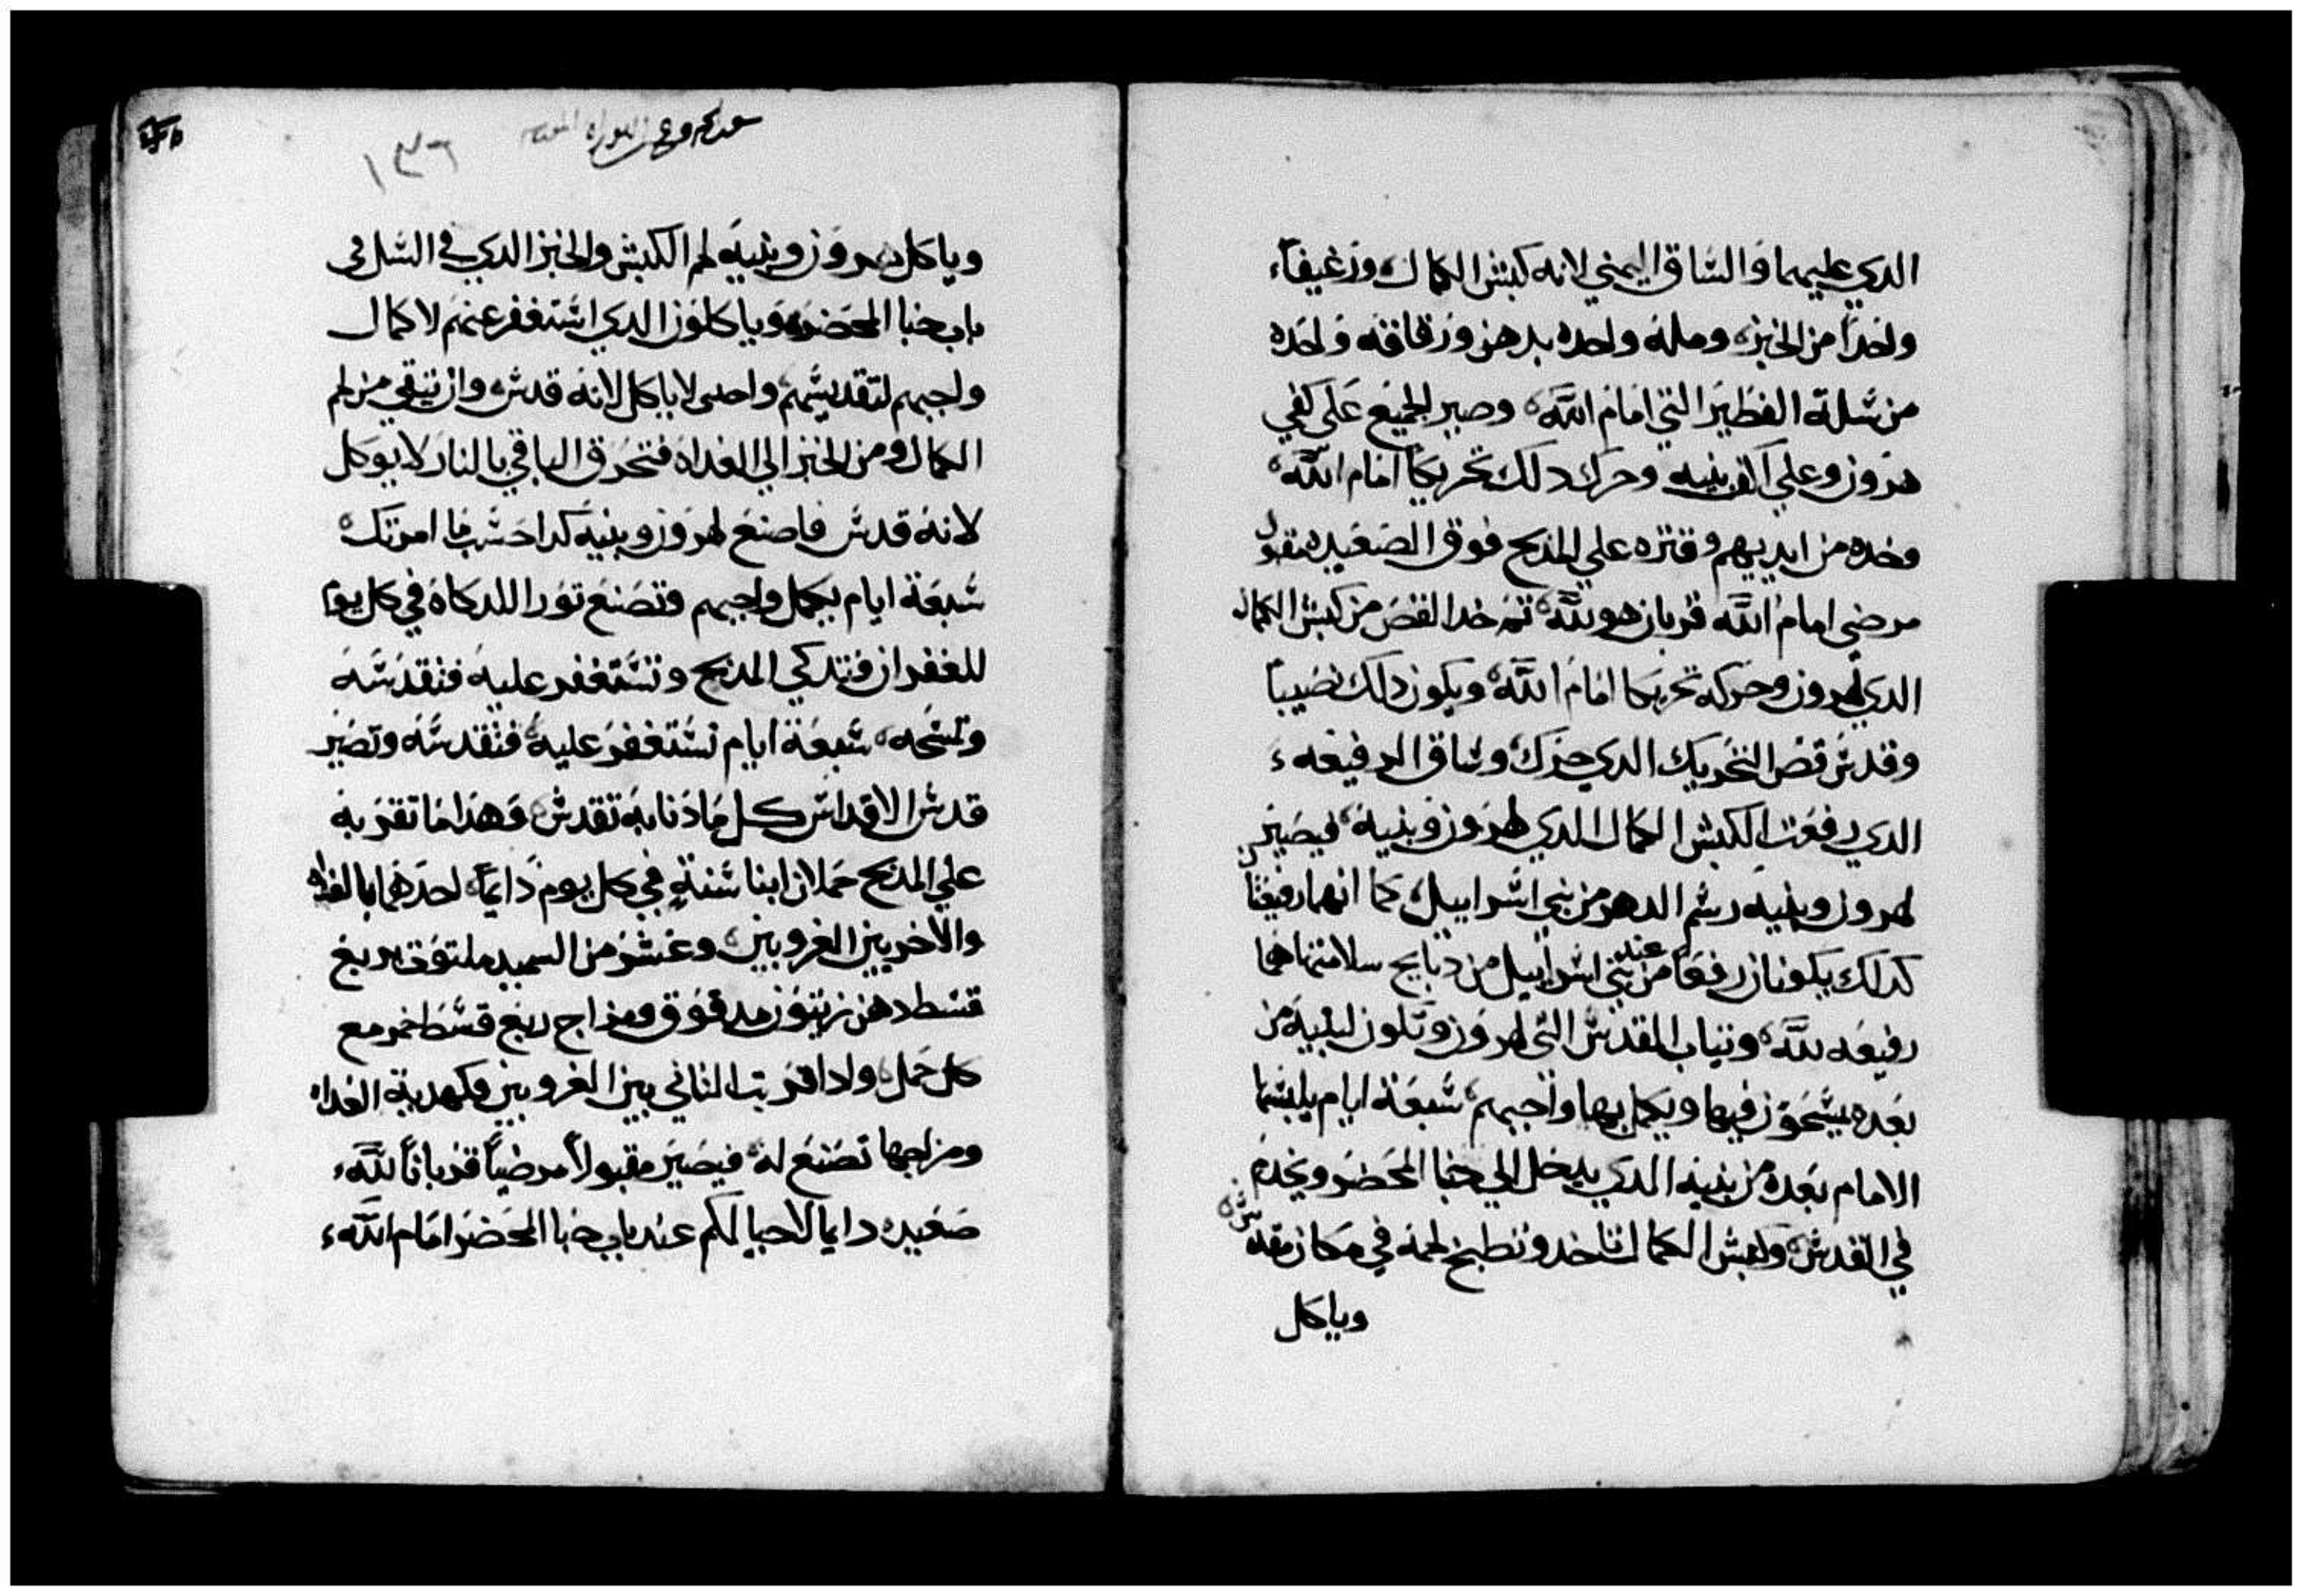 الدي عليهما والساق اليمني لانه كبش الكمال ورغيفاً
واحداً من الخبز وملة واحده بدهن ورقاقه واحده
من سلة الفطير التي امام الله وصير الجميع على كفي
هرون وعلي اكف بنيه وحرك دلك تحريكاً امام الله
وخده من ايديهم وقتره علي المدبح فوق الصعيده مقبول
مرضي امام الله قربان هو لله تم خد القص من كبش الكمال
الدي لهرون وحركه تحريكا امام الله ويكون دلك نصيباً
وقدس قص التحريك الدي حرك وساق الرفيعه
الدي رفعت الكبش الكمال الدي لهرون وبنيه فيصير
لهرون وبنيه رسم الدهر من بني اسراييل كما انهما رفيعتان
كدلك يكونان رفعا من عند بني اسراييل من دبايح سلامتها هما
رفيعه لله وتياب المقدس التي لهرون وتكون لبنيه من
بعده يتسحون فيها ويكمل بها واجبهم سبعة ايام يلبسها
الامام بعده من بنيه الدي يدخل الي خبا المحضر ويخدم
في القدس وكبش الكمال تاخد وتطبخ لحمه في مكان مقدس
وياكل
١٣٦
وياكل هرون وبنيه لحم الكبش والخبز الدي في السل في
باب خبا المحضر وياكلون الدي استغفر عنهم لاكمال
واجبهم لتقديسهم واجنبى لا ياكل لانه قدس وان تبقي من لحم
الكمال ومن الخبز الي الغداه فتحرق الباقي بالنار لا يوكل
لانه قدس فاصنع لهرون وبنيه كدا حسب ما امرتك
سبعة ايام يكمل واجبهم وتصنع تورا للدكاة في كل يوم
للغفران فتدكي المدبح وتستغفر عليه فتقدسه
وتمسحه سبعة ايام تستغفر عليه فتقدسه وتصير
قدس الاقداس كل ما دنا به تقدس وهذا ما تقربه
علي المدبح حملان ابنا سنة في كل يوم دايماً احدهما بالغداه
والاخر بين الغروبين وعشر من السميد ملتوت بربع
قسط دهن زيتون مدقوق ومزاج ربع قسط خمر مع
كل حمل وادا قربت التاني بين الغروبين فكهدية الغداه
ومزاجها تصنع له فيصير مقبولاً مرضياً قرباناً لله
صعيده دايما لاحيالكم عند باب خبا المحضر امام الله